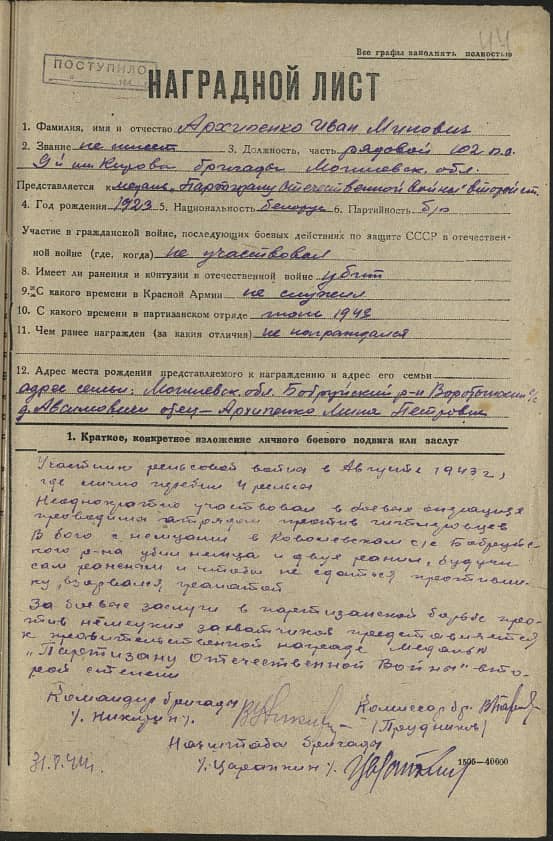 44
Все графы заполнять полностью
ПОСТУПИЛО
НАГРАДНОЙ ЛИСТ
1. Фамилия, имя и отчество Архипенко Иван Минович
2. Звание не имеет 3. Должность, часть рядовой 102 п.о.
9й им. Кирова бригады Могилевск. обл.
Представляется к медаль „Партизану Отечественной войны" второй ст.
4. Год рождения 1923 5. Национальность белорус 6. Партийность б/п
Участие в гражданской войне, последующих боевых действиях по защите СССР в отечествен-
ной войне (где, когда) не участвовал
8. Имеет ли ранения и контузии в отечественной войне убит
9. С какого времени в Красной Армии не служил
10. С какого времени в партизанском отряде 1943
11. Чем ранее награжден (за какия отличия) не награждался
12. Адрес места рождения представляемого к награждению и адрес его семьи
адрес семьи: Могилевск. обл. Бобруйский р-н с/с
д. отец — Архипенко Мина Петрович
1. Краткое, конкретное изложение личного боевого подвига или заслуг
Участник рельсовой война в Августе 1943 г,
где лично перебил 4 рельса
Неоднократно участвовал в боевых операциях
проводимых отрядом против гитлеровцев
В бою с немцами в с/с Бобруйс-
кого р-на убил немца и двух ранил, будучи
сам раненым и чтобы не сдаться противни-
ку, взорвался гранатой
За боевые заслуги в партизанской борьбе про-
тив немецких захватчиков представляется
к правительственной награде медалью
„Партизану Отечественной Войны" вто-
рой степени
Командир бригады Комиссар бр.
/. Никитин /. (Прудников)
Нач. штаба бригады
/. Царанкин /.
1505—40000